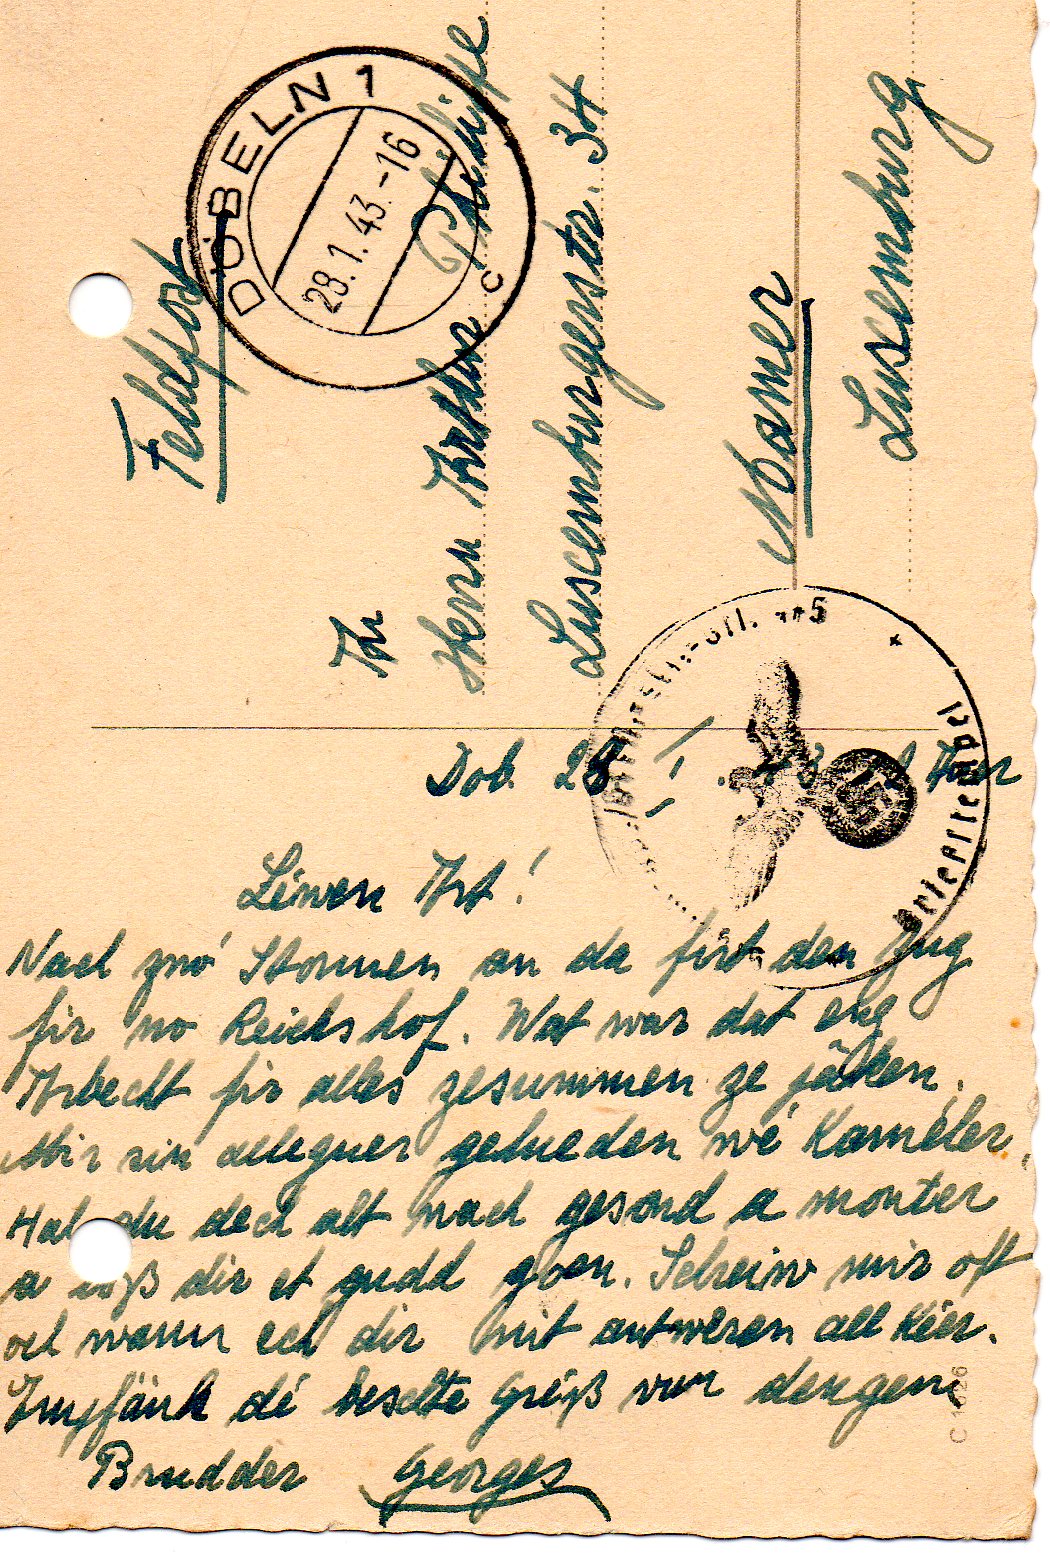 Feldpost
DÖBELN 1
28.1.43.-16
c
An
Herrn Arthur Philippe
Luxemburgerstr. 34
Mamer
Luxemburg
Briefstempel
Döb. 28 / 1 . 43 Auer
Léiwen Art!
Nach zwo' Stonnen an da firt den Zug
fir no Reichshof. Wat war dat eng
Arbecht fir alles zesummen ze jäken.
Mir sin alleguer gelueden wé Kaméler.
Hal du dech alt nach gesond a monter
a loß dir et gudd goen. Schreiw mir oft
och wann ech dir nit antweren all Kéier.
Empfänk dé beschte Gréiß vun dengem
Brudder Georges
C 1626